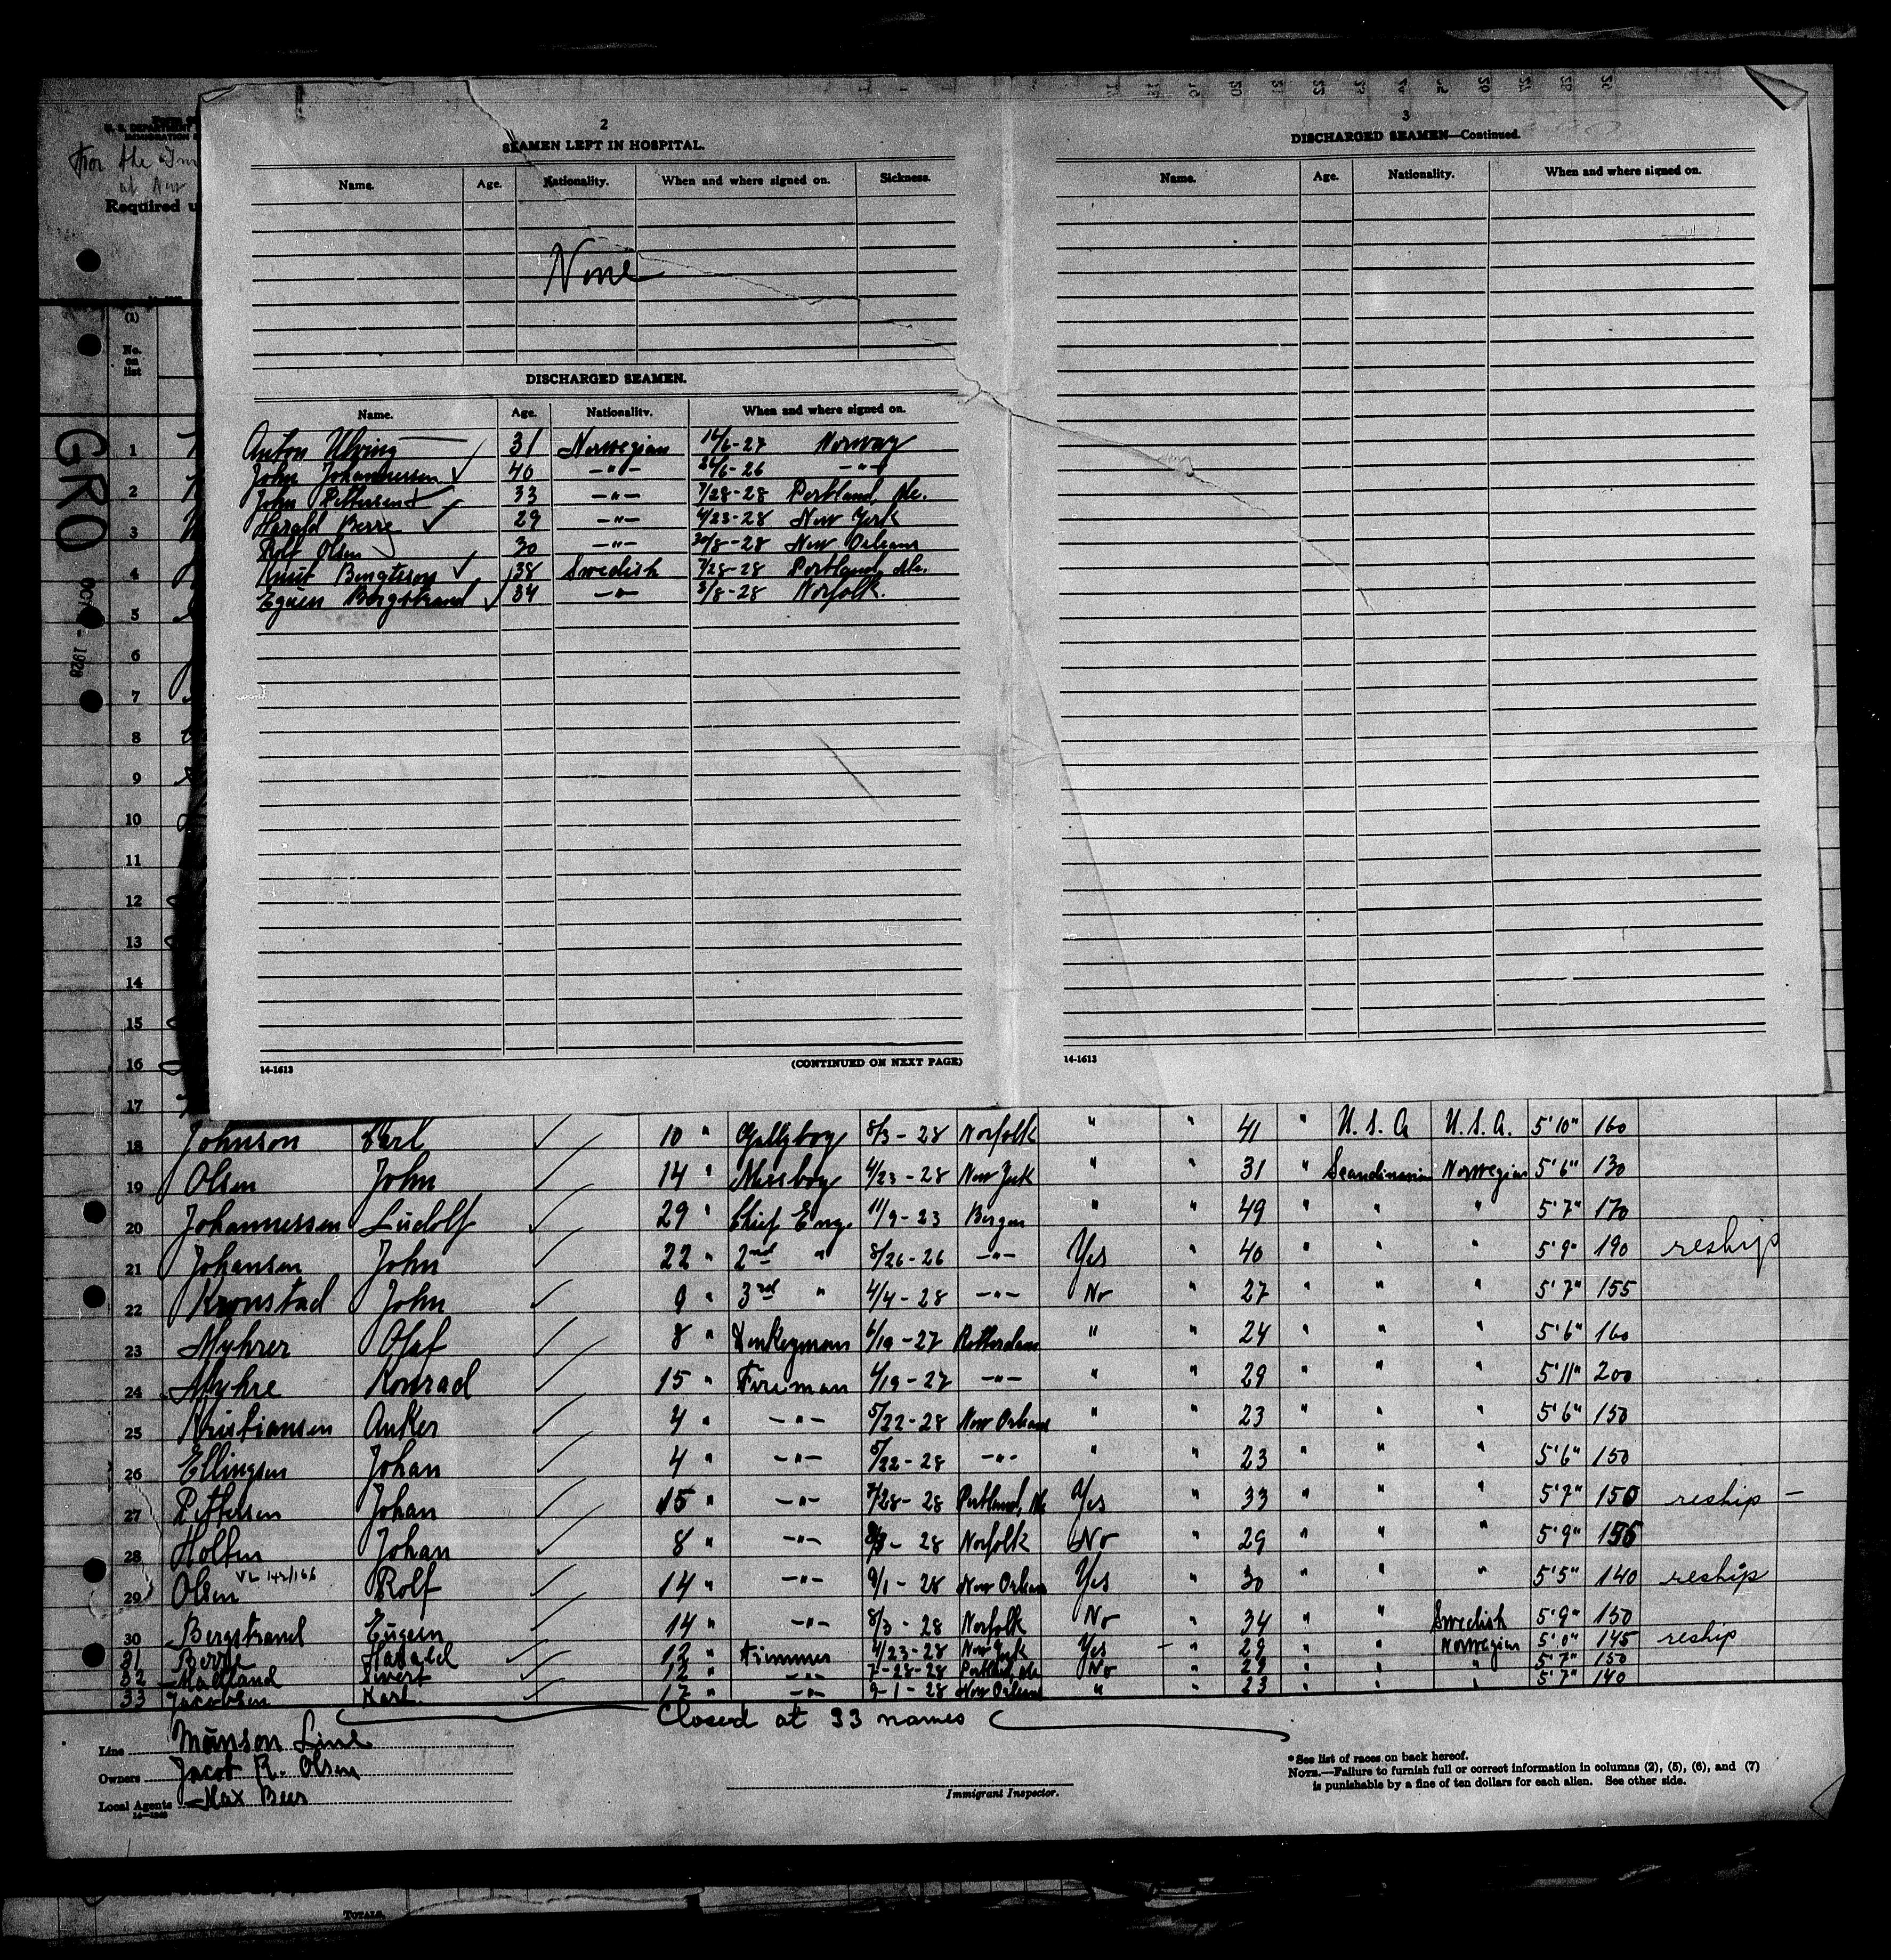 U. S. DEPARTMENT
IMMIGRATION
For the Im
at New
Required u
2
SEAMEN LEFT IN HOSPITAL.
Name. Age. Nationality. When and where signed on. Sickness.
None
DISCHARGED SEAMEN.
Name. Age. Nationality. When and where signed on.
Anton Ulving 31 Norwegian 16/6-27 Norway
John Johannessen ✓ 40 -"- 26/6-26 -"-
John Pettersen ✓ 33 -"- 7/28-28 Portland, Me.
Harald Berre ✓ 29 -"- 4/23-28 New York
Rolf Olsen 30 -"- 30/8-28 New Orleans
Knut Bengtsson ✓ 38 Swedish 7/28-28 Portland, Me.
Eguen Bergstrand ✓ 34 -"- 3/8-28 Norfolk.
14-1613 (CONTINUED ON NEXT PAGE)
3
DISCHARGED SEAMEN—Continued.
Name. Age. Nationality. When and where signed on.
14-1613
(1)
No. on list
GRO
OCT - 1928
1
2
3
4
5
6
7
8
9
10
11
12
13
14
15
16
17
18 Johnson Carl ✓ 10 " Gallyboy 8/3-28 Norfolk " " 41 " U. S. A U. S. A. 5'10" 160
19 Olsen John ✓ 14 " Messboy 4/23-28 New York " " 31 " Scandinavian Norwegian 5'6" 130
20 Johannessen Ludolf ✓ 29 " Chief Eng. 11/9-23 Bergen " " 49 " " " 5'7" 170
21 Johansen John ✓ 22 " 2nd " 8/26-26 -"- Yes " 40 " " " 5'9" 190 reship
22 Kronstad John ✓ 9 " 3rd " 4/4-28 -"- No " 27 " " " 5'7" 155
23 Myhrer Olaf ✓ 8 " Donkeyman 6/19-27 Rotterdam " " 24 " " " 5'6" 160
24 Myhre Konrad ✓ 15 " Fireman 4/19-27 -"- " " 29 " " " 5'11" 200
25 Kristiansen Anker ✓ 4 " -"- 5/22-28 New Orleans " " 23 " " " 5'6" 150
26 Ellingsen Johan ✓ 4 " -"- 5/22-28 -"- " " 23 " " " 5'6" 150
27 Pettersen Johan ✓ 15 " -"- 7/28-28 Portland, Me Yes " 33 " " " 5'7" 150 reship -
28 Holten Johan ✓ 8 " -"- 8/3-28 Norfolk No " 29 " " " 5'9" 155
VL 142/166
29 Olsen Rolf ✓ 14 " -"- 9/1-28 New Orleans Yes " 30 " " " 5'5" 140 reship
30 Bergstrand Eugen ✓ 14 " -"- 8/3-28 Norfolk No " 34 " " Swedish 5'9" 150
31 Berre Harald ✓ 12 " Trimmer 4/23-28 New York Yes - " 29 " " Norwegian 5'0" 145 reship
32 Madland Sivert ✓ 12 " -"- 7-28-28 Portland, Me No " 29 " " " 5'7" 150
33 Jacobsen Karl ✓ 17 " -"- 9-1-28 New Orleans " " 23 " " " 5'7" 140
Closed at 33 names
Line Munson Line
Owners Jacob R. Olsen
Local Agents Max Beer
Immigrant Inspector.
*See list of races on back hereof.
NOTE.—Failure to furnish full or correct information in columns (2), (5), (6), and (7)
is punishable by a fine of ten dollars for each alien. See other side.
TOTALS